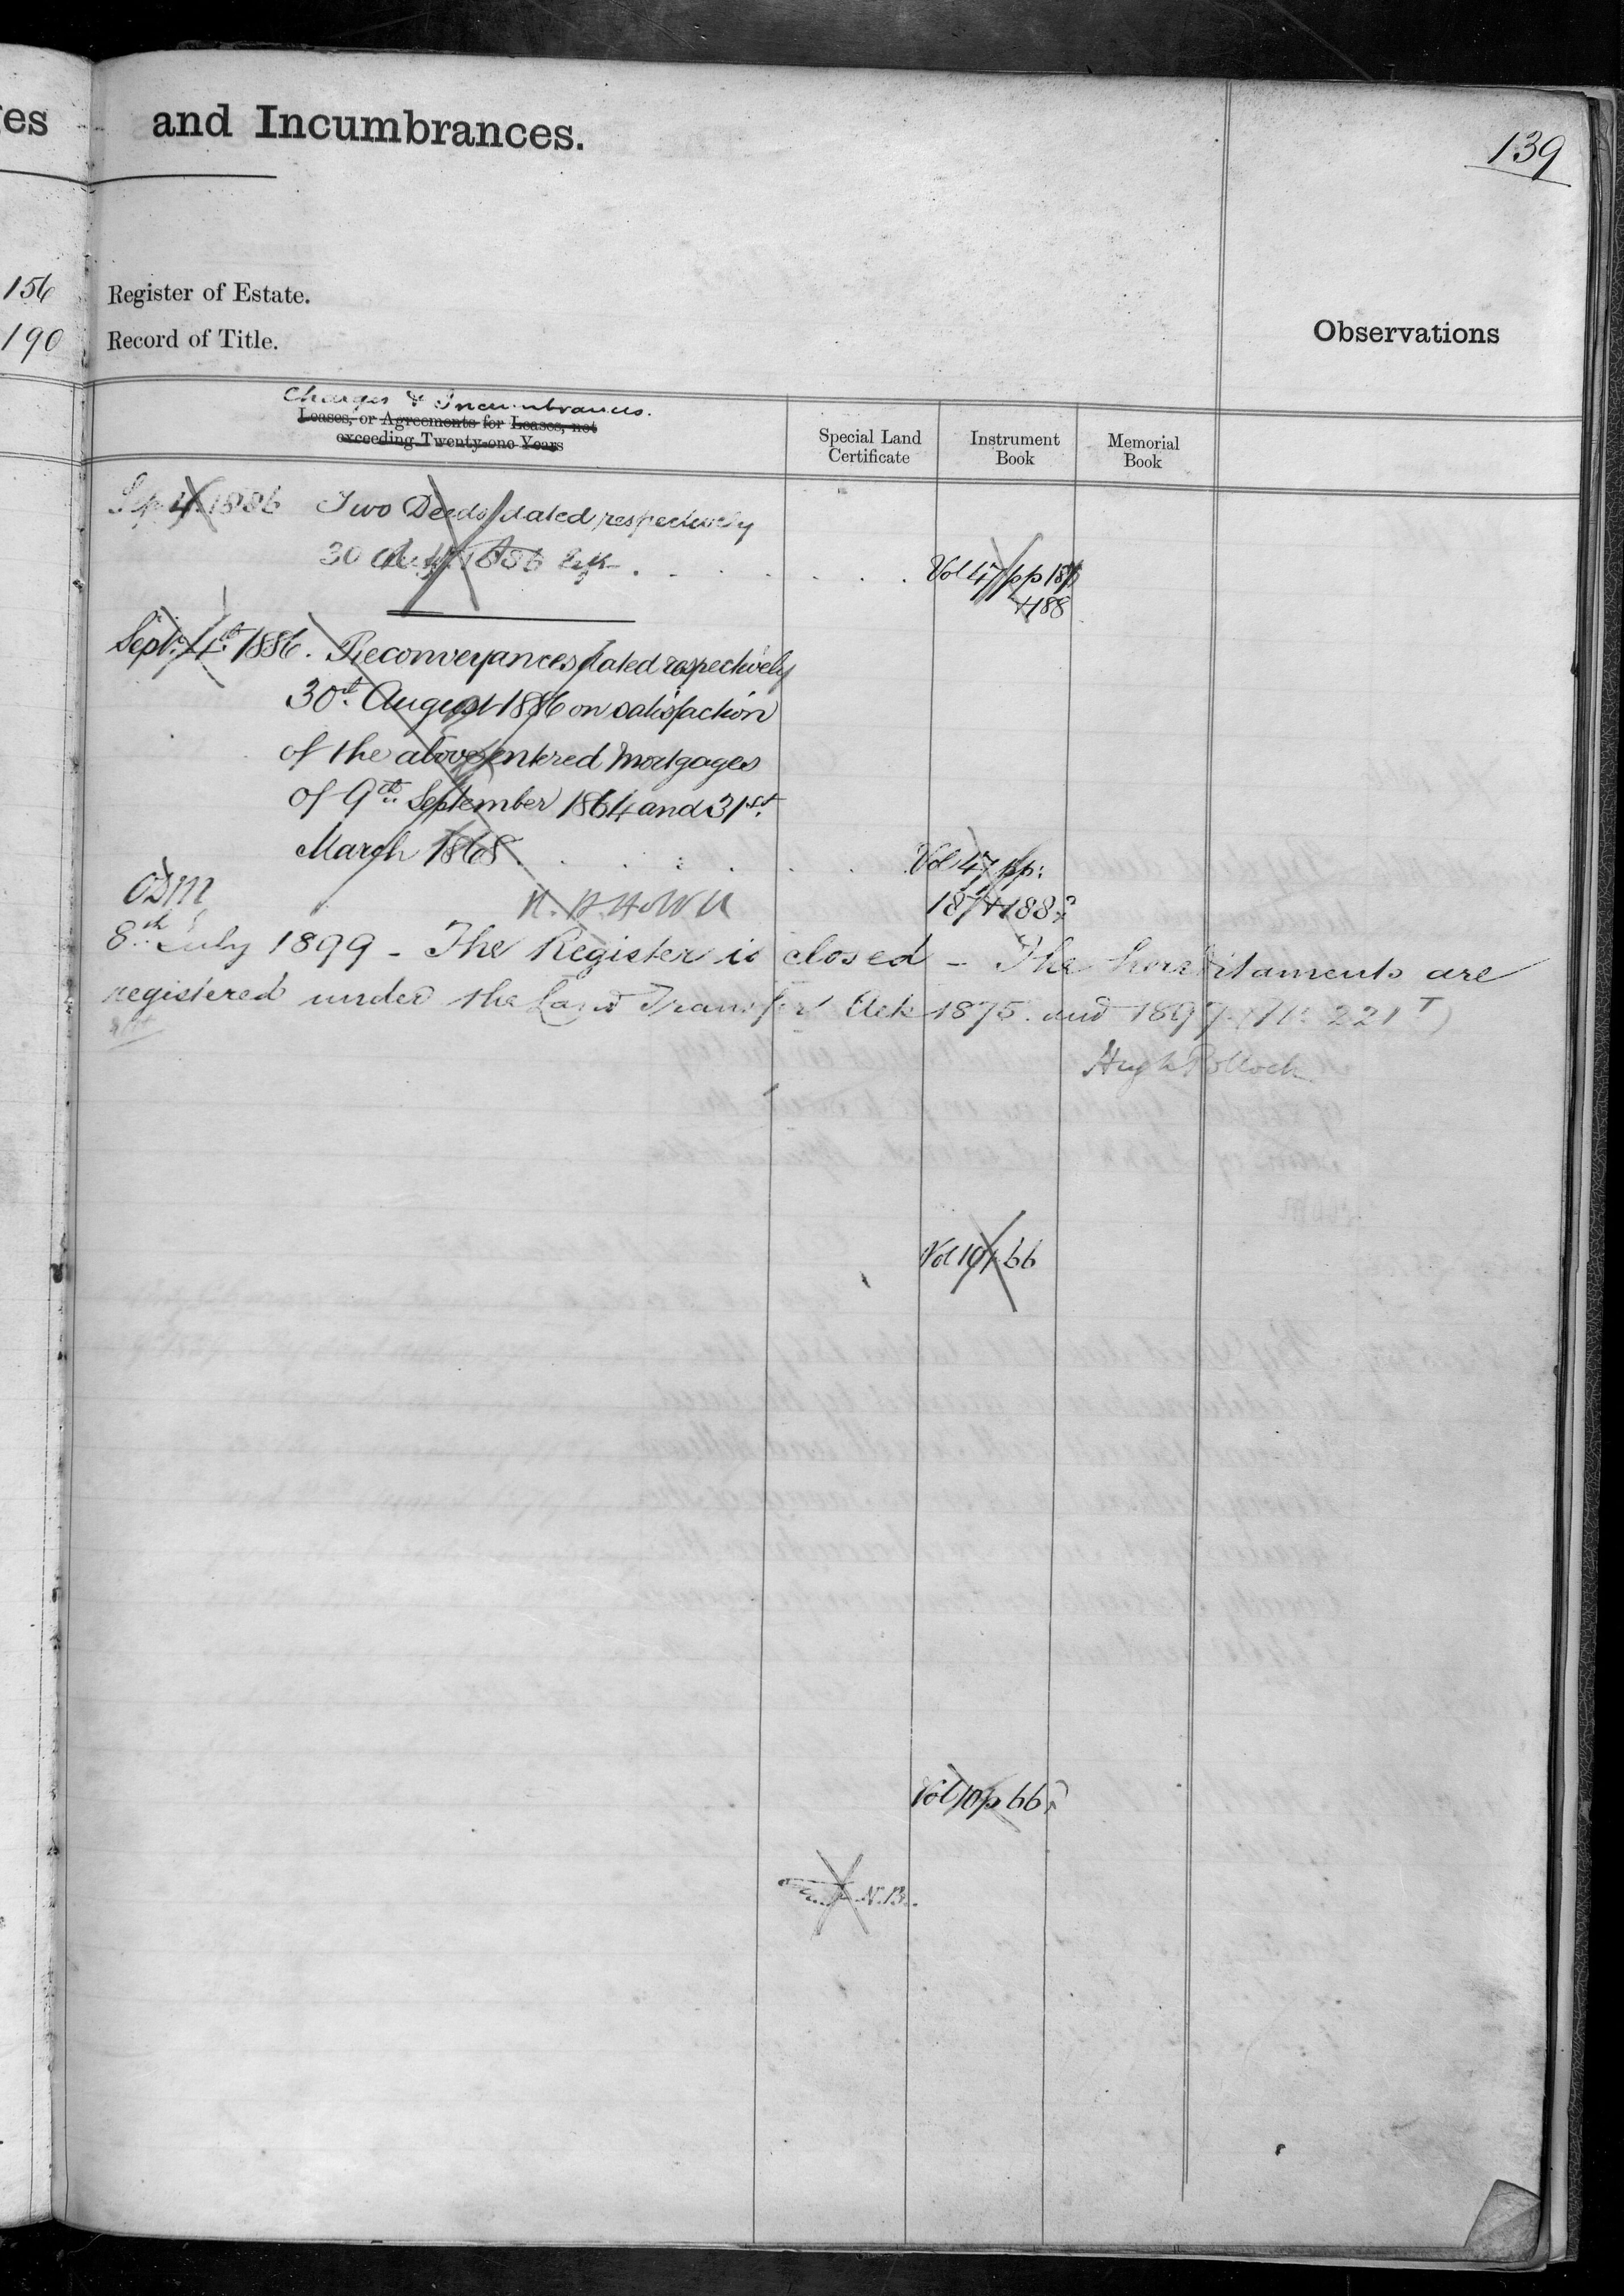 es
and Incumbrances.
139
156
Register of Estate.
190
Record of Title.
Observations
Charges & Incumbrances.
Leases, or Agreements for Leases, not
exceeding Twenty-one Years
Special Land
Certificate
Instrument
Book
Memorial
Book
Sep 4. 1886 Two Deeds dated respectively
30 Aug. 1886 left . . . . . . .
Vol 47 pp 187
+188
Sept. 4th 1886. Reconveyances dated respectively
30th August 1886 on satisfaction
of the above entered Mortgages
of 9th September 1864 and 31st
March 1868 . . . . . .
Vol 47 pp:
187+188
8th July 1899 - The Register is closed - The hereditaments are
registered under the Land Transfer Acts 1875 and 1897 (No 221 T)
Hugh Pollock
Vol 10 p 66
Vol 10 p 66
N.B.